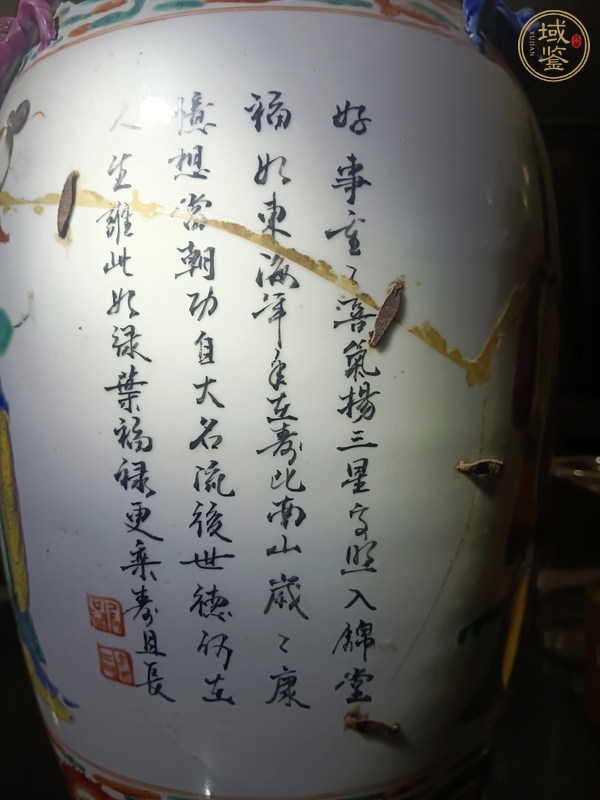 好事重〻喜氣揚三星高照入錦堂
福如東海年年在壽比南山歲〻康
憶想當朝功自大名流後世德仍在
人生誰此如綠葉福祿更乘壽且長
域鉴
YUJIAN